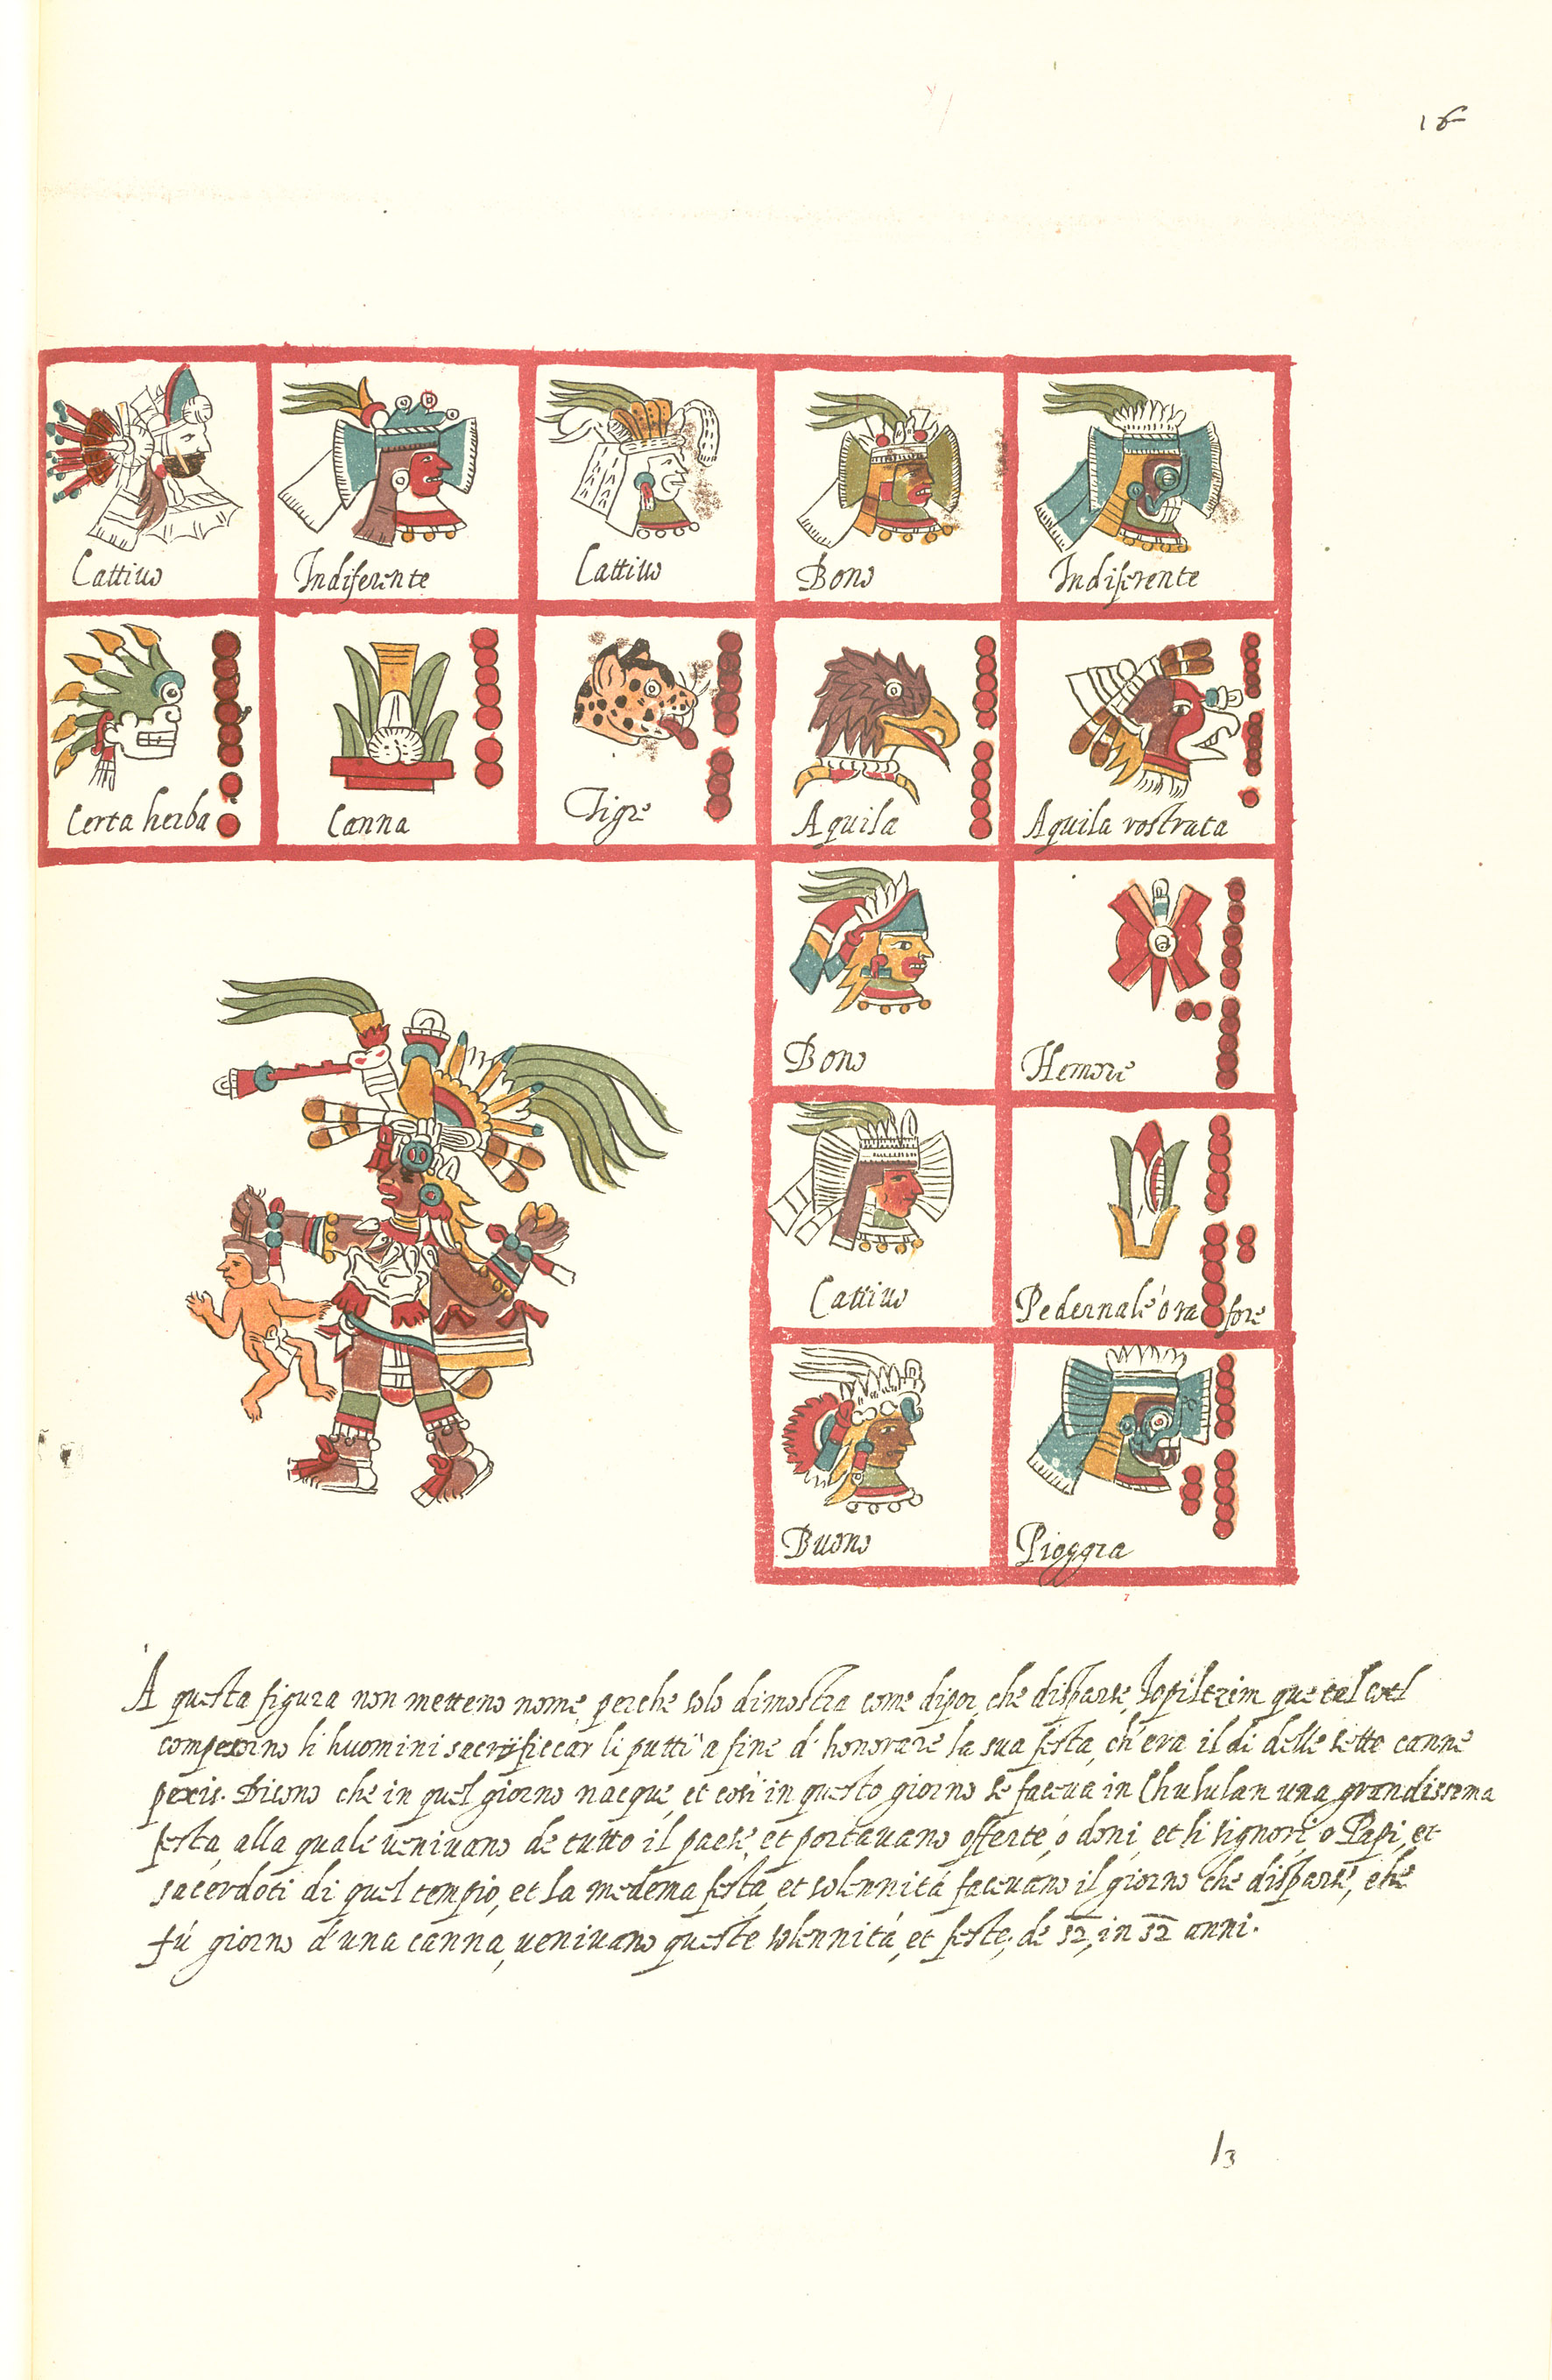 16
Cattiuo
Indiferente
Cattiuo
Bono
Indiferente
Certa herba
Canna
Tigre
Aquila
Aquila rostrata
Bono
Hemore
Cattiuo
Pedernale ó ra fore
Buono
Pioggia
A questa figura non metteno nome, perche solo dimostra come dipoi, che disparse,
li huomini sacrificar li putti a fine d' honorare la sua festa, ch'era il di delle sette canne
Dicono che in quel giorno nacque, et cosi in questo giorno se faceua in Chululan una grandissima
festa, alla quale uenivano de tutto il paese, et portauano offerte, ó doni, et li signori, o Papi, et
sacerdoti di quel tempio, et la medema festa, et solennitá faceuano il giorno che disparse, che
fú giorno d'una canna, uenivano queste solennitá, et feste, de 52, in 52 anni.
7
13